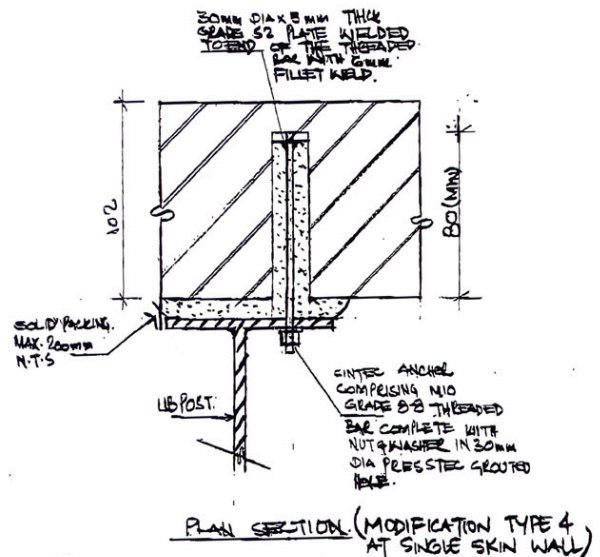 30mm DIA x 5mm THICK
GRADE S2 PLATE WELDED
TO END OF THE THREADED
BAR WITH 6mm
FILLET WELD.
102
80 (MIN)
SOLID PACKING.
MAX. 200mm
N.T.S
UB POST.
CINTEC ANCHOR
COMPRISING M10
GRADE 8-8 THREADED
BAR COMPLETE WITH
NUT & WASHER IN 30mm
DIA PRESSTEC GROUTED
HOLE.
PLAN SECTION. (MODIFICATION TYPE 4
AT SINGLE SKIN WALL)